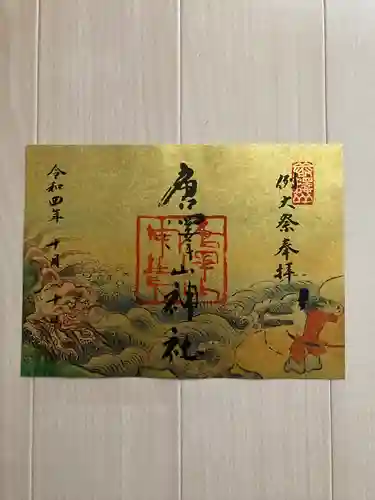 例大祭奉拝
唐澤山神社
令和四年十月